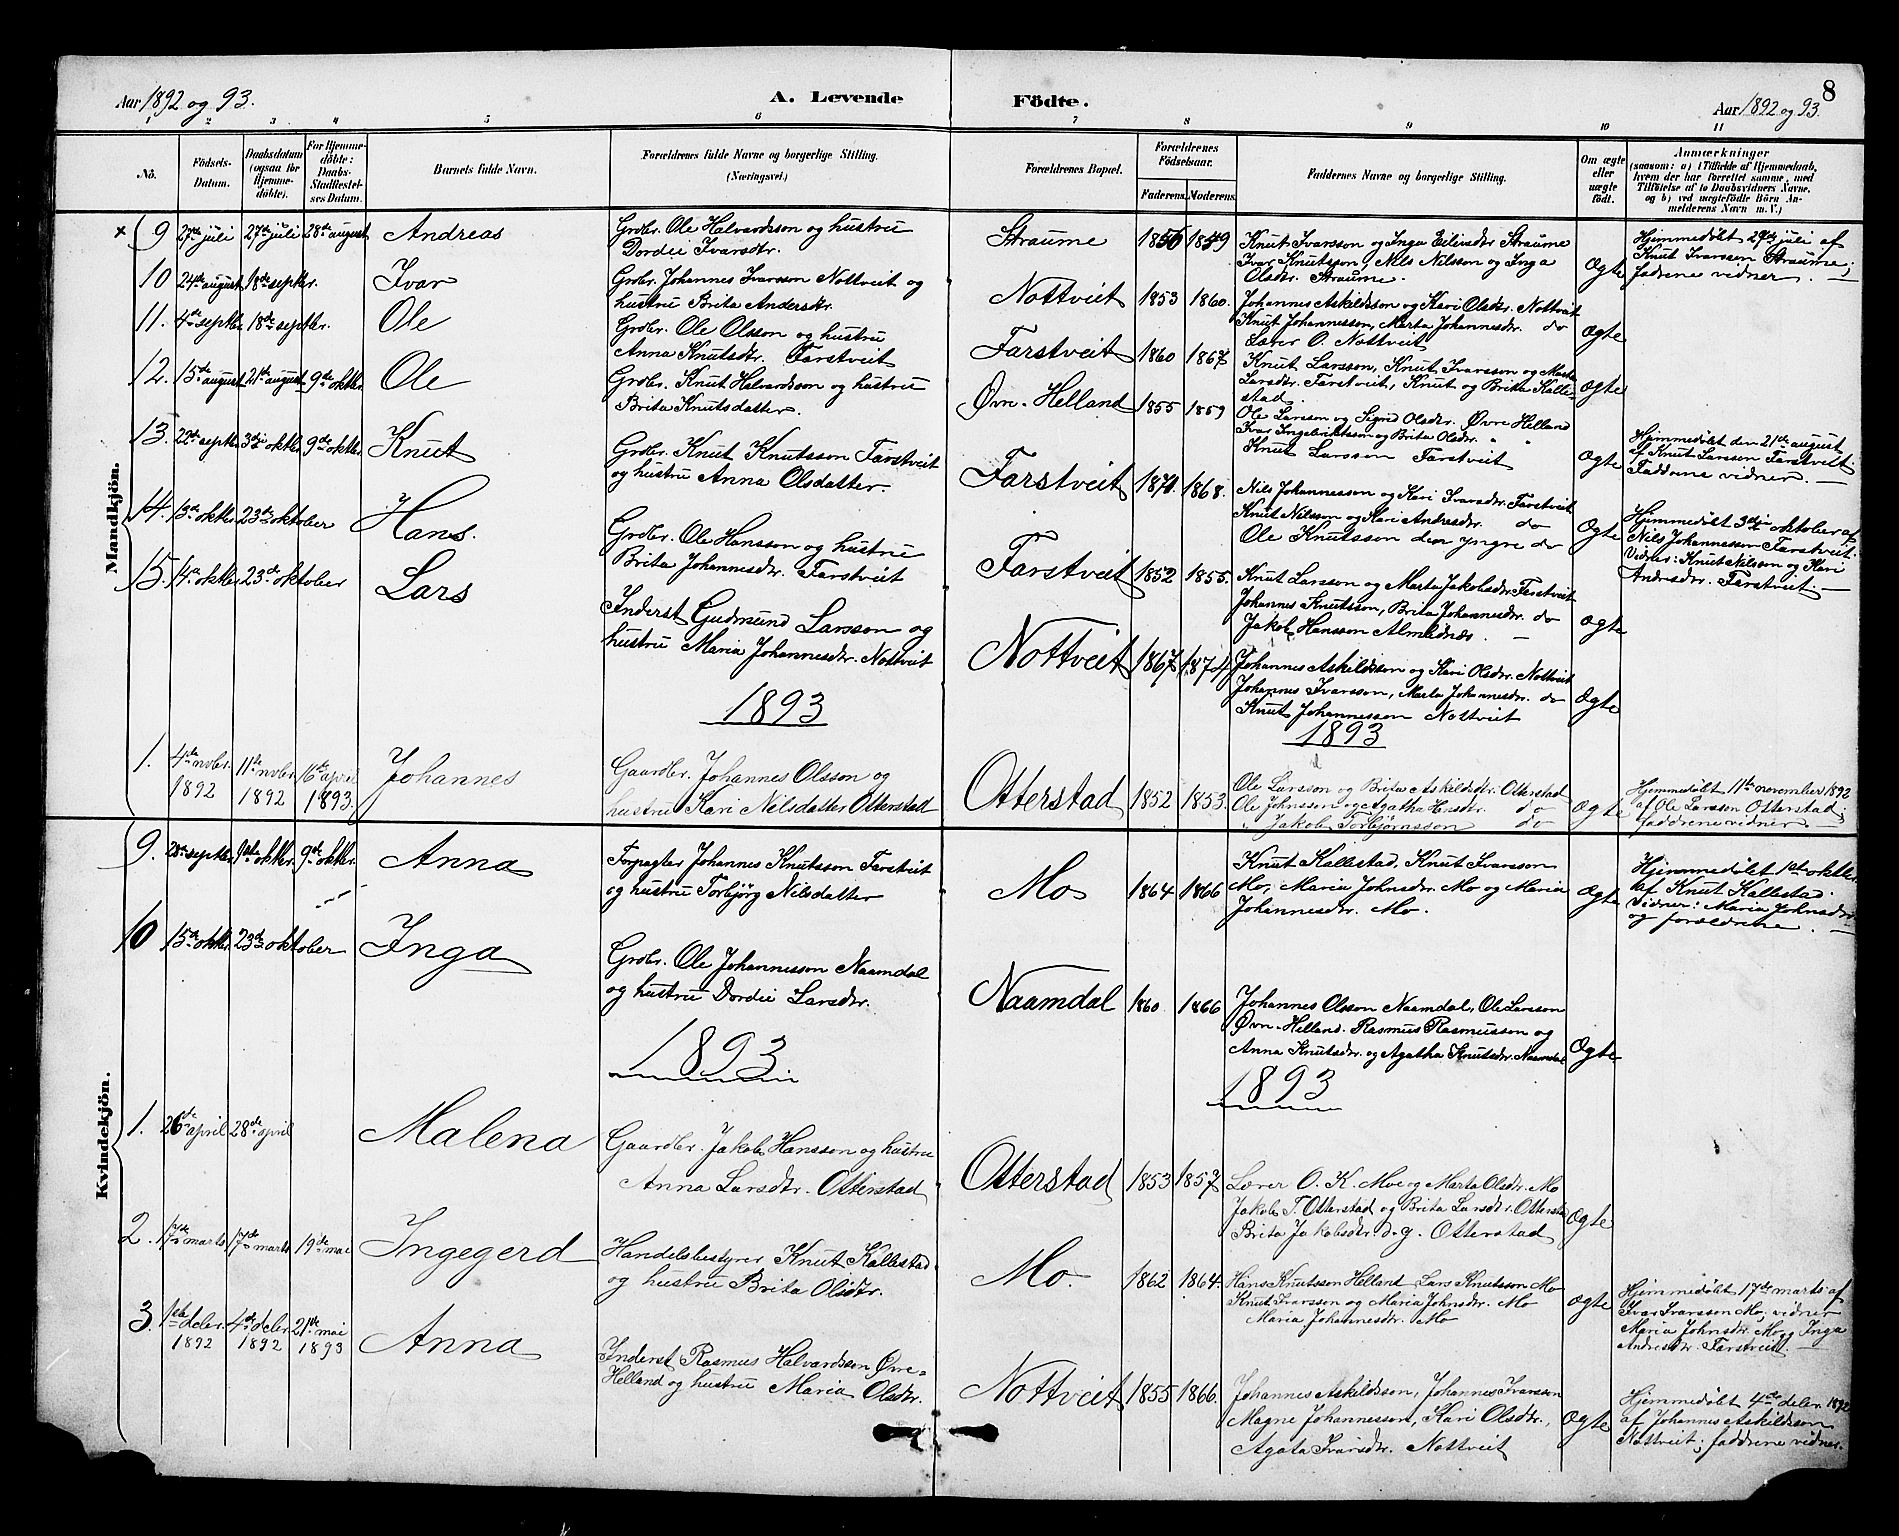 8
Aar 1892 og 93.
A. Levende Födte.
Aar 1892 og 93.
1 2 3 4 5 6 7 8 9 10 11
No.
Födsels-Datum.
Daabsdatum (ogsaa for Hjemme-döbte).
For Hjemme-döbte: Daabs-Stadfæstelses Datum.
Barnets fulde Navn.
Forældrenes fulde Navne og borgerlige Stilling.
(Næringsvei.)
Forældrenes Bopæl.
Forældrenes Födselsaar.
Faderens. Moderens.
Faddernes Navne og borgerlige Stilling.
Om ægte eller uægte födt.
Anmærkninger
(saasom: a) i Tilfælde af Hjemmedaab,
hvem der har forrettet samme, med
Tilföielse af to Daabsvidners Navne,
og b) ved uægtefödte Börn An-
melderens Navn m. V.)
Mandkjön.
× 9 27de juli 27de juli 28de august Andreas
Grdbr. Ole Halvardsson og hustru
Dordei Ivarsdtr.
Straume 1856 1859
Knut Ivarsson og Inga Eilivsdtr Straume
Ivar Knutsson, Nils Nilsson og Inga
Olsdtr. Straume.
Ægte
Hjemmedøbt 27de juli af
Knut Ivarsson Straume;
fadrene vidner. —
10 24de august 18de septbr. Ivar
Grdbr. Johannes Ivarsson Nottveit og
hustru Brita Andersdtr.
Nottveit 1853 1860.
Johannes Askildsson og Kari Olsdtr. Nottveit
Knut Johannesson, Marta Johannesdtr. do
Lærer O. Nottveit
Ægte
11. 4de septbr 18de septbr. Ole
Grdbr. Ole Olsson og hustru
Anna Knutsdtr. Farstveit
Farstveit 1860 1867
Knut Larsson, Knut Ivarsson og Marta
Larsdtr. Farstveit, Knut og Brita Kalle-
stad.
Ægte
12. 15de august 21de august 9de oktbr. Ole
Grdbr. Knut Halvardsson og hustru
Brita Knutsdatter.
Øvre-Helland 1855 1859
Ole Larsson og Signe Olsdtr. Øvre Helland
Ivar Ingebrigtsson og Brita Olsdtr. " "
Knut Larsson Farstveit
Ægte
Hjemmedøbt den 21de august
af Knut Larsson Farstveit
Faddrene vidner. —
13. 22de septbr. 3die oktbr. 9de oktbr. Knut
Grdbr. Knut Knutsson Farstveit
og hustru Anna Olsdatter.
Farstveit 1871. 1868.
Nils Johannesson og Kari Ivarsdtr. Farstveit
Knut Nilsson og Kari Andresdtr. do
Ole Knutsson den yngre do
Ægte
Hjemmedøbt 3die oktober af
Nils Johannesson Farstveit.
Vidner: Knut Nilsson og Kari
Andresdtr. Farstveit. —
14. 13de oktbr. 23de oktober Hans.
Grdbr. Ole Hansson og hustru
Brita Johannesdtr. Farstveit
Farstveit 1852 1855.
Knut Larsson og Marta Jakobsdtr. Farstveit
Johannes Knutsson, Brita Johannesdtr. do
Jakob Hansson Almeland. —
Ægte
15. 14de oktbr 23de oktober Lars
Inderst Gudmund Larsson og
hustru Maria Johannesdtr. Nottveit
Nottveit 1867 1874
Johannes Askildsson og Kari Olsdtr. Nottveit
Johannes Ivarsson, Marta Johannesdtr. do
Knut Johannesson Nottveit
Ægte
1893
1893
1. 4de novbr. 1892 11te novbr. 1892 16de april 1893. Johannes
Gaardbr. Johannes Olsson og
hustru Kari Nilsdatter Otterstad
Otterstad 1852 1853.
Ole Larsson og Brita Askildsdtr. Otterstad
Ole Johnsson og Agatha dtr. do
Jakob Torbjørnsson do
Ægte
Hjemmedøbt 11te november 1892
af Ole Larsson Otterstad;
faddrene vidner. —
Kvindekjön.
9. 28de septbr. 9de oktbr. 9de oktbr. Anna
Forpagter Johannes Knutsson Farstveit
og hustru Torbjørg Nilsdatter
Mo 1864 1866
Knut Kallestad. Knut Ivarsson
Mo, Maria Johnsdtr. Mo og Maria
Johannesdtr. Mo.
Ægte
Hjemmedøbt 1ste oktbr.
af Knut Kallestad.
Vidner: Maria Johnsdtr
og forældrene. —
10 15de oktbr. 23de oktober Inga
Grdbr. Ole Johannesson Naamdal
og hustru Dordei Larsdtr.
Naamdal 1860 1866
Johannes Olsson Naamdal, Ole Larsson
Øvre-Helland. Rasmus Rasmusson og
Anna Knutsdtr. og Agatha Knutsdtr. Naamdal
Ægte
1893
1893
1. 26de april 28de april Malena
Gaardbr. Jakob Hansson og hustru
Anna Larsdtr. Otterstad
Otterstad 1853 1857
Lærer O. K. Moe og Marta Olsdtr. Mo
Jakob T. Otterstad og Brita Larsdtr. Otterstad
Brita Jakobsdtr. d.y. Otterstad
Ægte
2. 17de marts 17de marts 19de mai Ingegerd
Handelsbestyrer Knut Kallestad
og hustru Brita Olsdtr.
Mo. 1862 1864
Hans Knutsson Helland Lars Knutsson Mo
Knut Ivarsson og Maria Johnsdtr. Mo
Maria Johannesdtr. Mo
Ægte
Hjemmedøbt 17de marts af
Ivar Ivarsson Mo; vidner
Maria Johnsdtr. Mo og Inga
Andresdtr. Farstveit. —
3. 1ste decbr. 1892 4de decbr. 1892 21de mai 1893 Anna
Inderst Rasmus Halvardsson Øvre-
Helland og hustru Maria Olsdtr.
Nottveit 1855 1866.
Johannes Askildsson, Johannes Ivarsson
Magne Johannesson, Kari Olsdtr.,
Agata Ivarsdtr. Nottveit
Ægte
Hjemmedøbt 4de decbr 1892
af Johannes Askildsson
Nottveit; faddrene vidner.